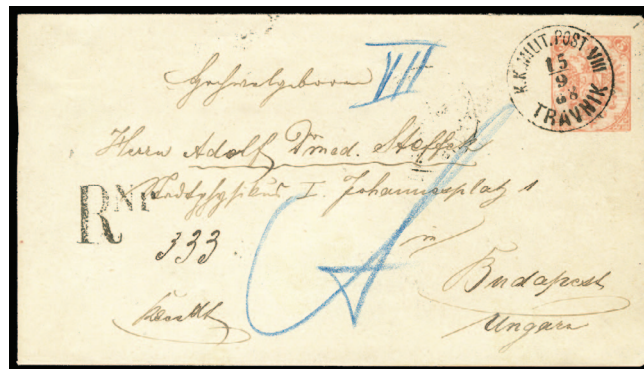 VII
K.K. MILIT. POST VIII
15
9
88
TRAVNIK
Hochwolgeboren
Herrn Adolf Dr med. Steffel
Stadtphysikus I. Johannesplatz 1
RNr
333
in
Budapest
Ungarn